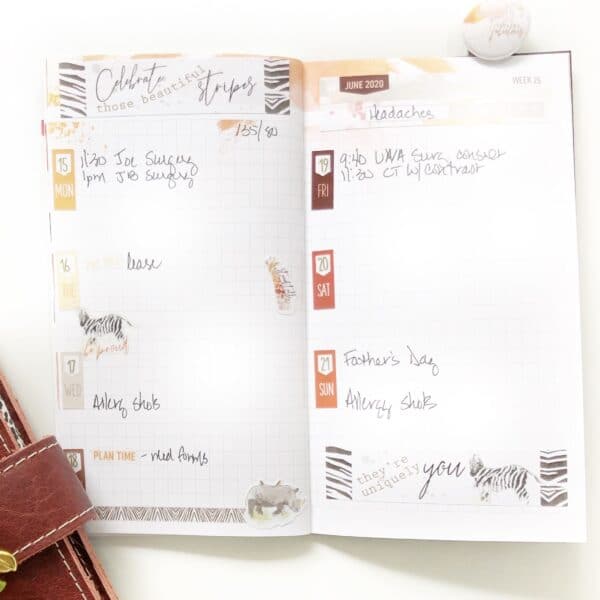 Celebrate
those beautiful stripes
135/80
15 11:30 Joe Surgery
MON 1pm JB Surgery
16 lease
TUE
Go proud
17
WED
Allergy Shots
18 PLAN TIME - med forms
JUNE 2020 WEEK 25
Headaches
19 9:40 UVA Surg consult
FRI 11:30 CT w/ contrast
20
SAT
21 Father's Day
SUN Allergy Shots
they're
uniquely you